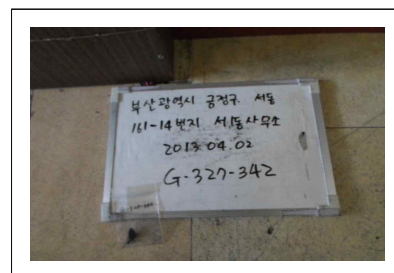 부산광역시 금정구 서동
161-14번지 서1동사무소
2013.04.02
G-327-342